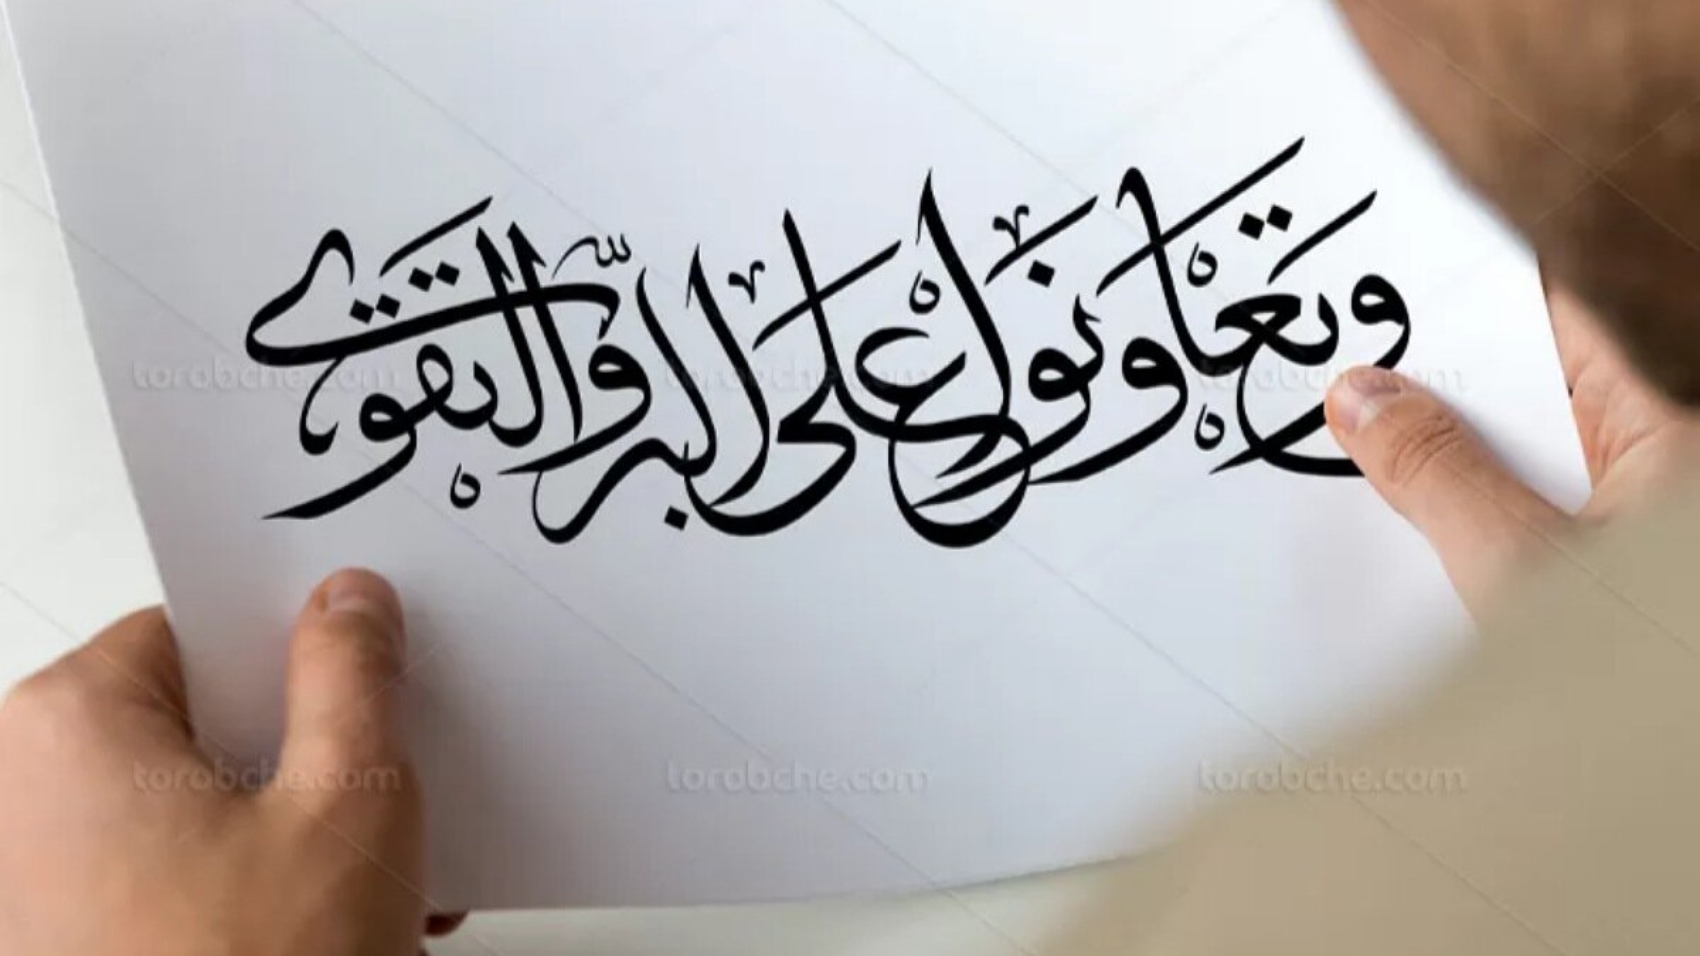 وتعاونوا على البر والتقوى
torobche.com torobche.com torobche.com
torobche.com torobche.com torobche.com